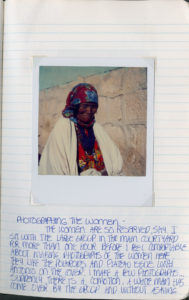 PHOTOGRAPHING THE WOMEN -
THE WOMEN ARE SO RESERVED, SHY. I
SIT WITH THE LARGE GROUP IN THE MAIN COURTYARD
FOR MORE THAN ONE HOUR BEFORE I FEEL COMFORTABLE
ABOUT MAKING PHOTOGRAPHS OF THE WOMEN HERE
THEY LIKE THE POLAROIDS AND ISSUE WITH
ANTONIO ON THE COVER. I MAKE A FEW PHOTOGRAPHS.
SUDDENLY THERE IS A COMMOTION. A WHITE MAN HAS
COME OVER TO THE GROUP AND WITHOUT ASKING